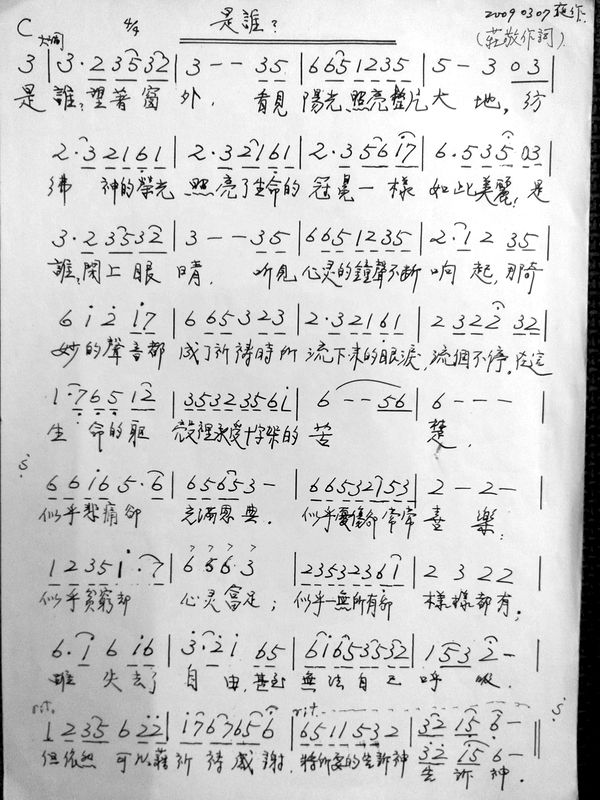 C大調 4/4 是誰? 2009 03 07
(莊敬作詞)
3 | 3·2 35 32 | 3 - - 35 | 665 1235 | 5 - 3 03 |
是誰?望著窗外,看見陽光照亮整片大地,彷
2·3 2161 | 2·3 2161 | 2·3 5617 | 6·535 03 |
彿神的榮光照亮了生命的冠冕一樣如此美麗;是
3·2 3532 | 3 - - 35 | 665 1235 | 2·12 35 |
誰?閉上眼睛,听見心灵的鐘聲不断响起,那奇
6 i 2 i7 | 6 65 3 23 | 2·32161 | 2 322 32 |
妙的聲音都成了祈禱時所流下來的眼淚,流個不停,
1·765 12 | 3532356i | 6 - - 56 | 6 - - - |
生命的軀殼裡承受十字架的苦楚.
66i6 5·6 | 65653 - | 66532753 | 2 - 2 - |
似乎悲痛卻充滿恩典.似乎憂傷卻常常喜樂;
1235i·7 | 6 5 6·3 | 2353236i | 2 3 22 |
似乎貧窮却心灵富足;似乎一無所有卻樣樣都有;
6·i 6 i6 | 3·2i 65 | 6i653532 | 1532 - |
雖失去了自由,甚至無法自己呼吸.
rit. rit.
1 235 6 22 | i767656 | 6511532 | 32 15 6 - ||
但依然可以藉祈禱感謝,將所要的告訴神
32 15 6 -
告訴神.